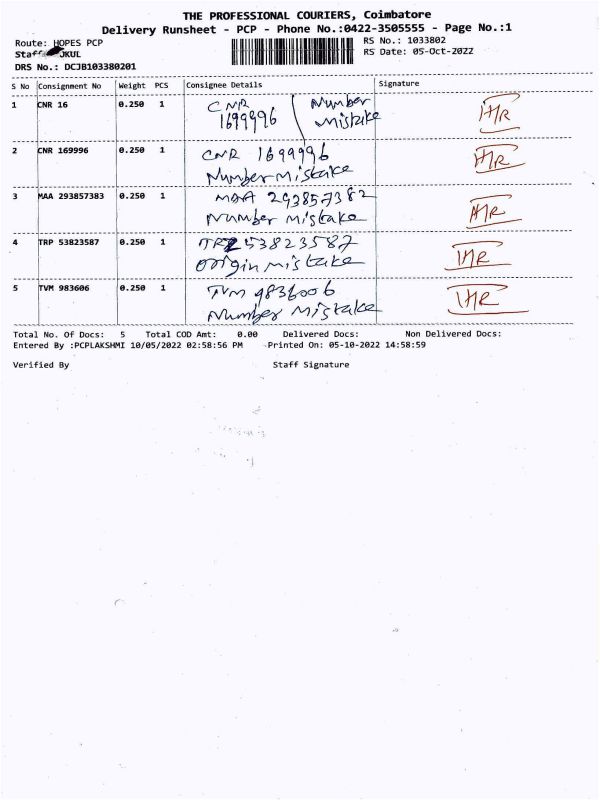 THE PROFESSIONAL COURIERS, Coimbatore
Delivery Runsheet - PCP - Phone No.:0422-3505555 - Page No.:1
Route: HOPES PCP
RS No.: 1033802
Staff JKUL
RS Date: 05-Oct-2022
DRS No.: DCJB103380201
S No Consignment No Weight PCS Consignee Details Signature
1 CNR 16 0.250 1 CNR 1699996 Number Mistake
2 CNR 169996 0.250 1 CNR 1699996
Number Mistake
3 MAA 293857383 0.250 1 MAA 293857382
Number Mistake
4 TRP 53823587 0.250 1 TRZ 53823587
Origin mistake
5 TVM 983606 0.250 1 TVM 9836006
Number Mistake
Total No. Of Docs: 5 Total COD Amt: 0.00 Delivered Docs: Non Delivered Docs:
Entered By :PCPLAKSHMI 10/05/2022 02:58:56 PM Printed On: 05-10-2022 14:58:59
Verified By Staff Signature